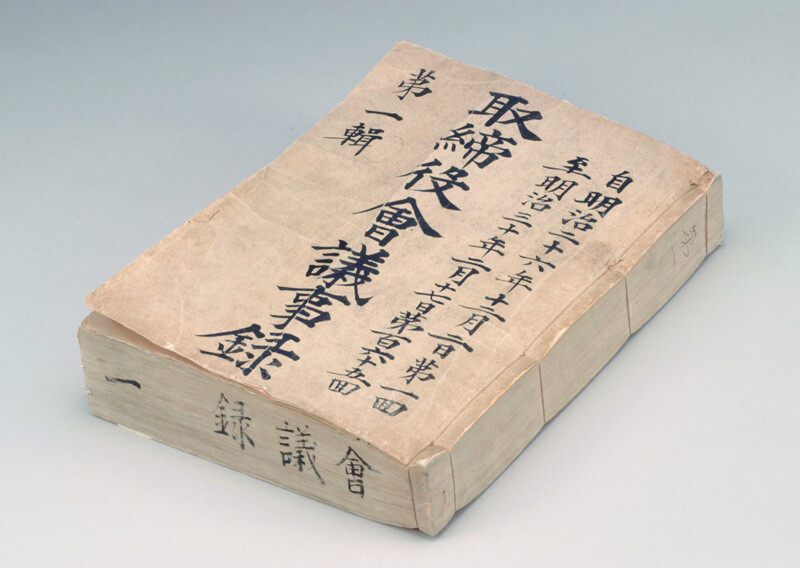 自明治二十六年十一月一日第一回
至明治三十年二月十七日第百六十五回
取締役會議事録
第一輯
會議録 一